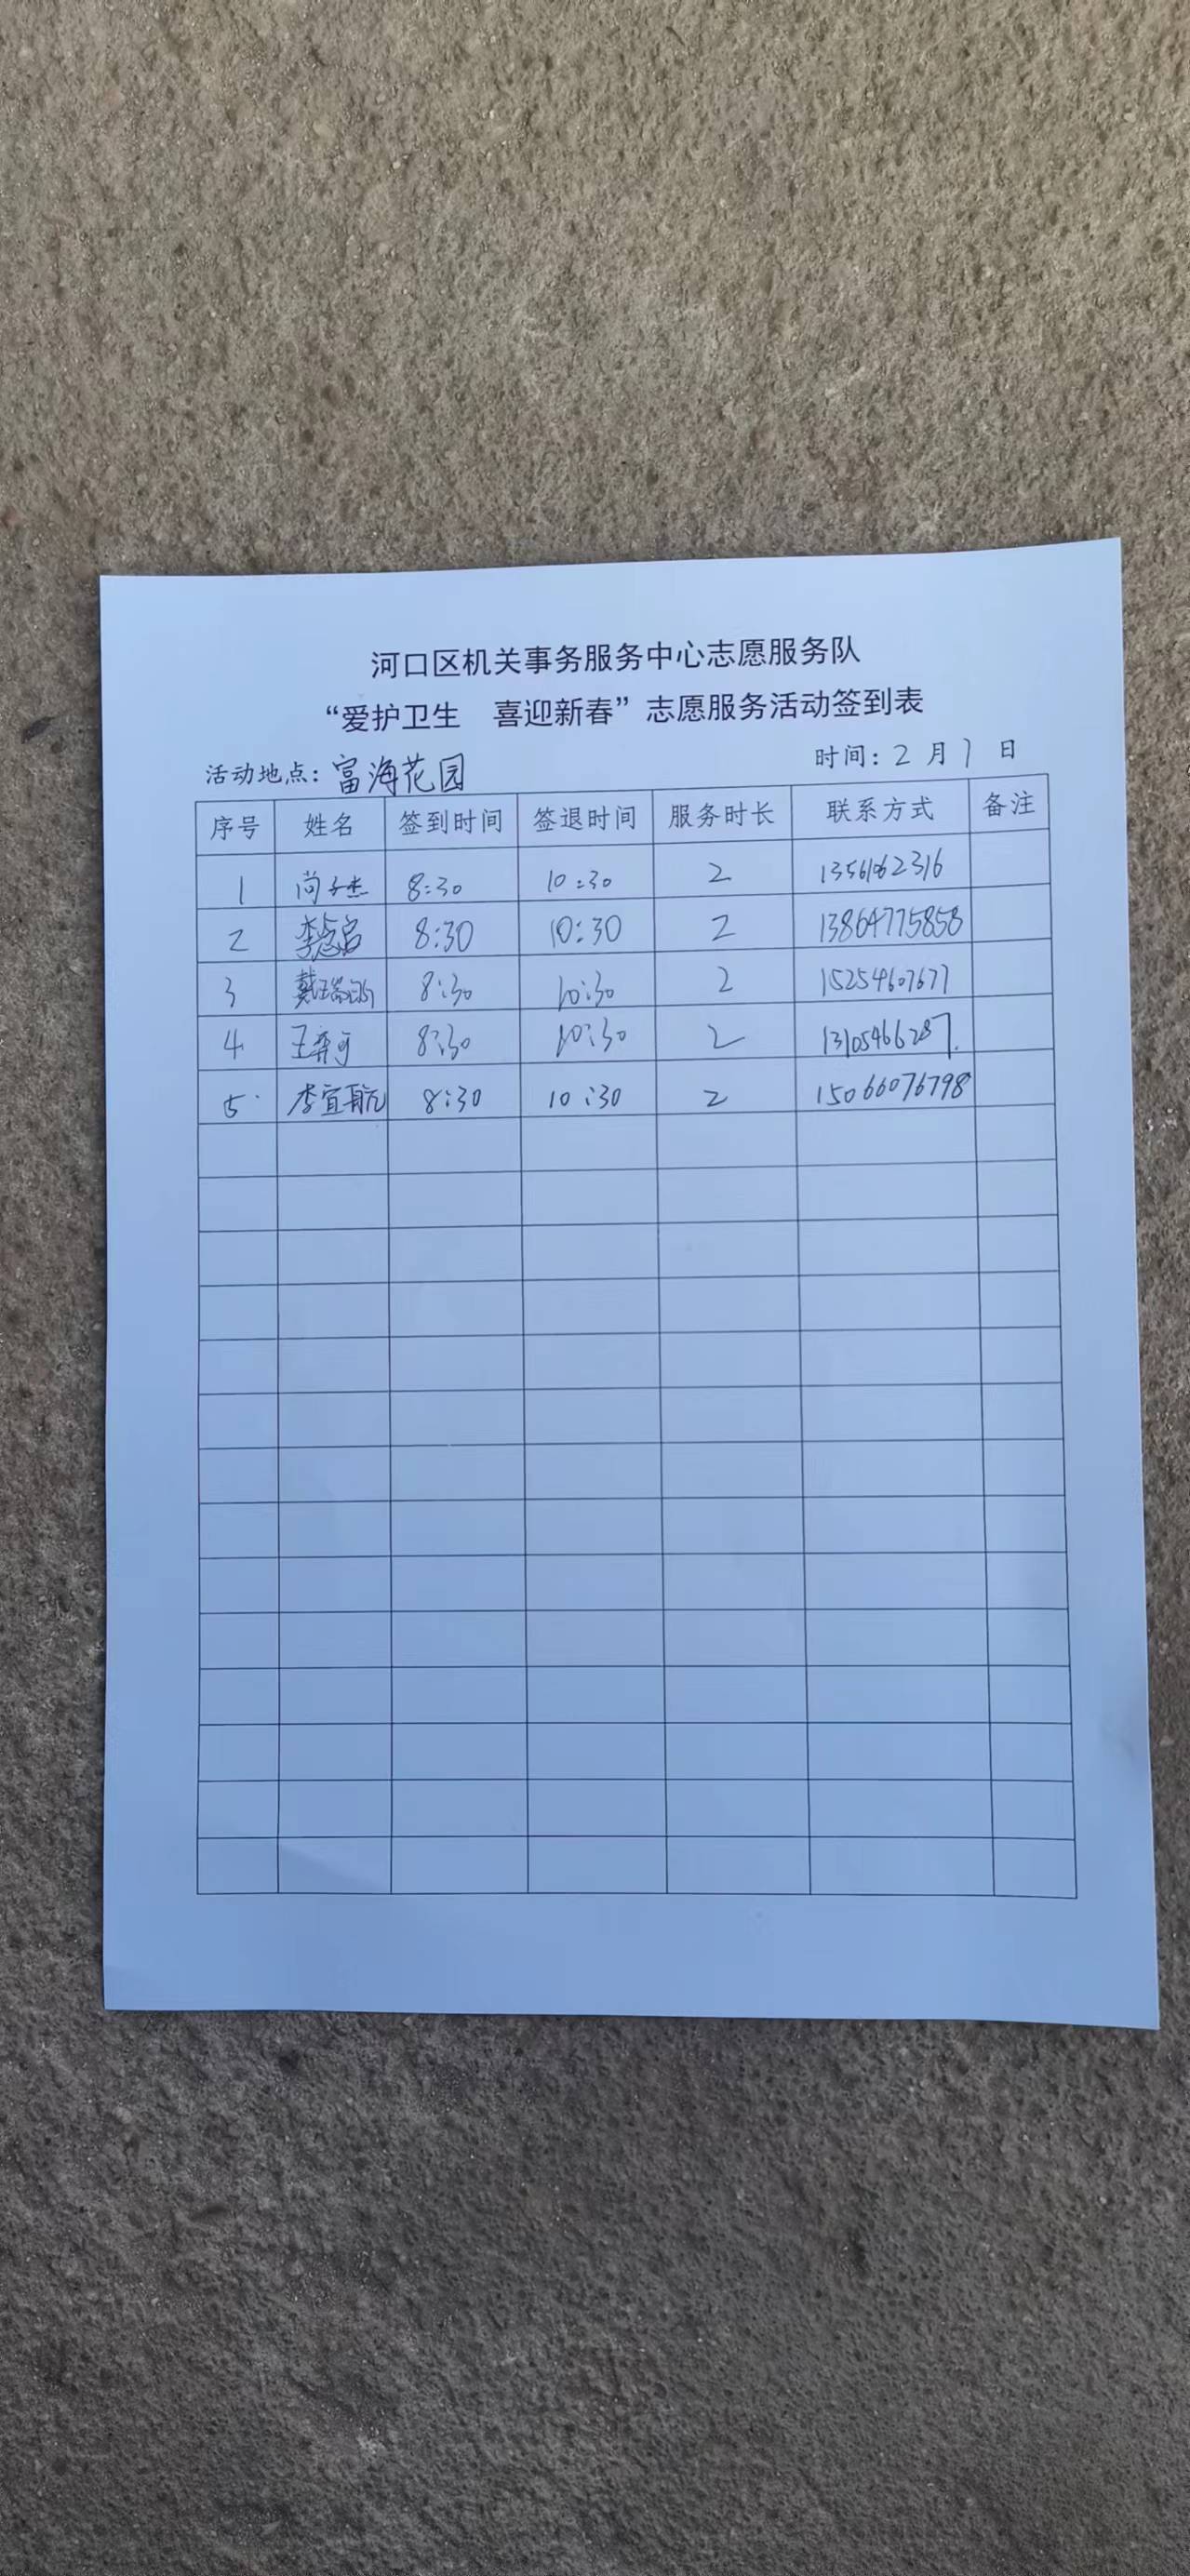 河口区机关事务服务中心志愿服务队
“爱护卫生 喜迎新春”志愿服务活动签到表
活动地点：富海花园 时间：2月7日
序号 姓名 签到时间 签退时间 服务时长 联系方式 备注
1 尚子杰 8:30 10:30 2
2 8:30 10:30 2 13864775858
3 8:30 10:30 2 15254607677
4 8:30 10:30 2 13105466287
5 李宜航 8:30 10:30 2 15066076798